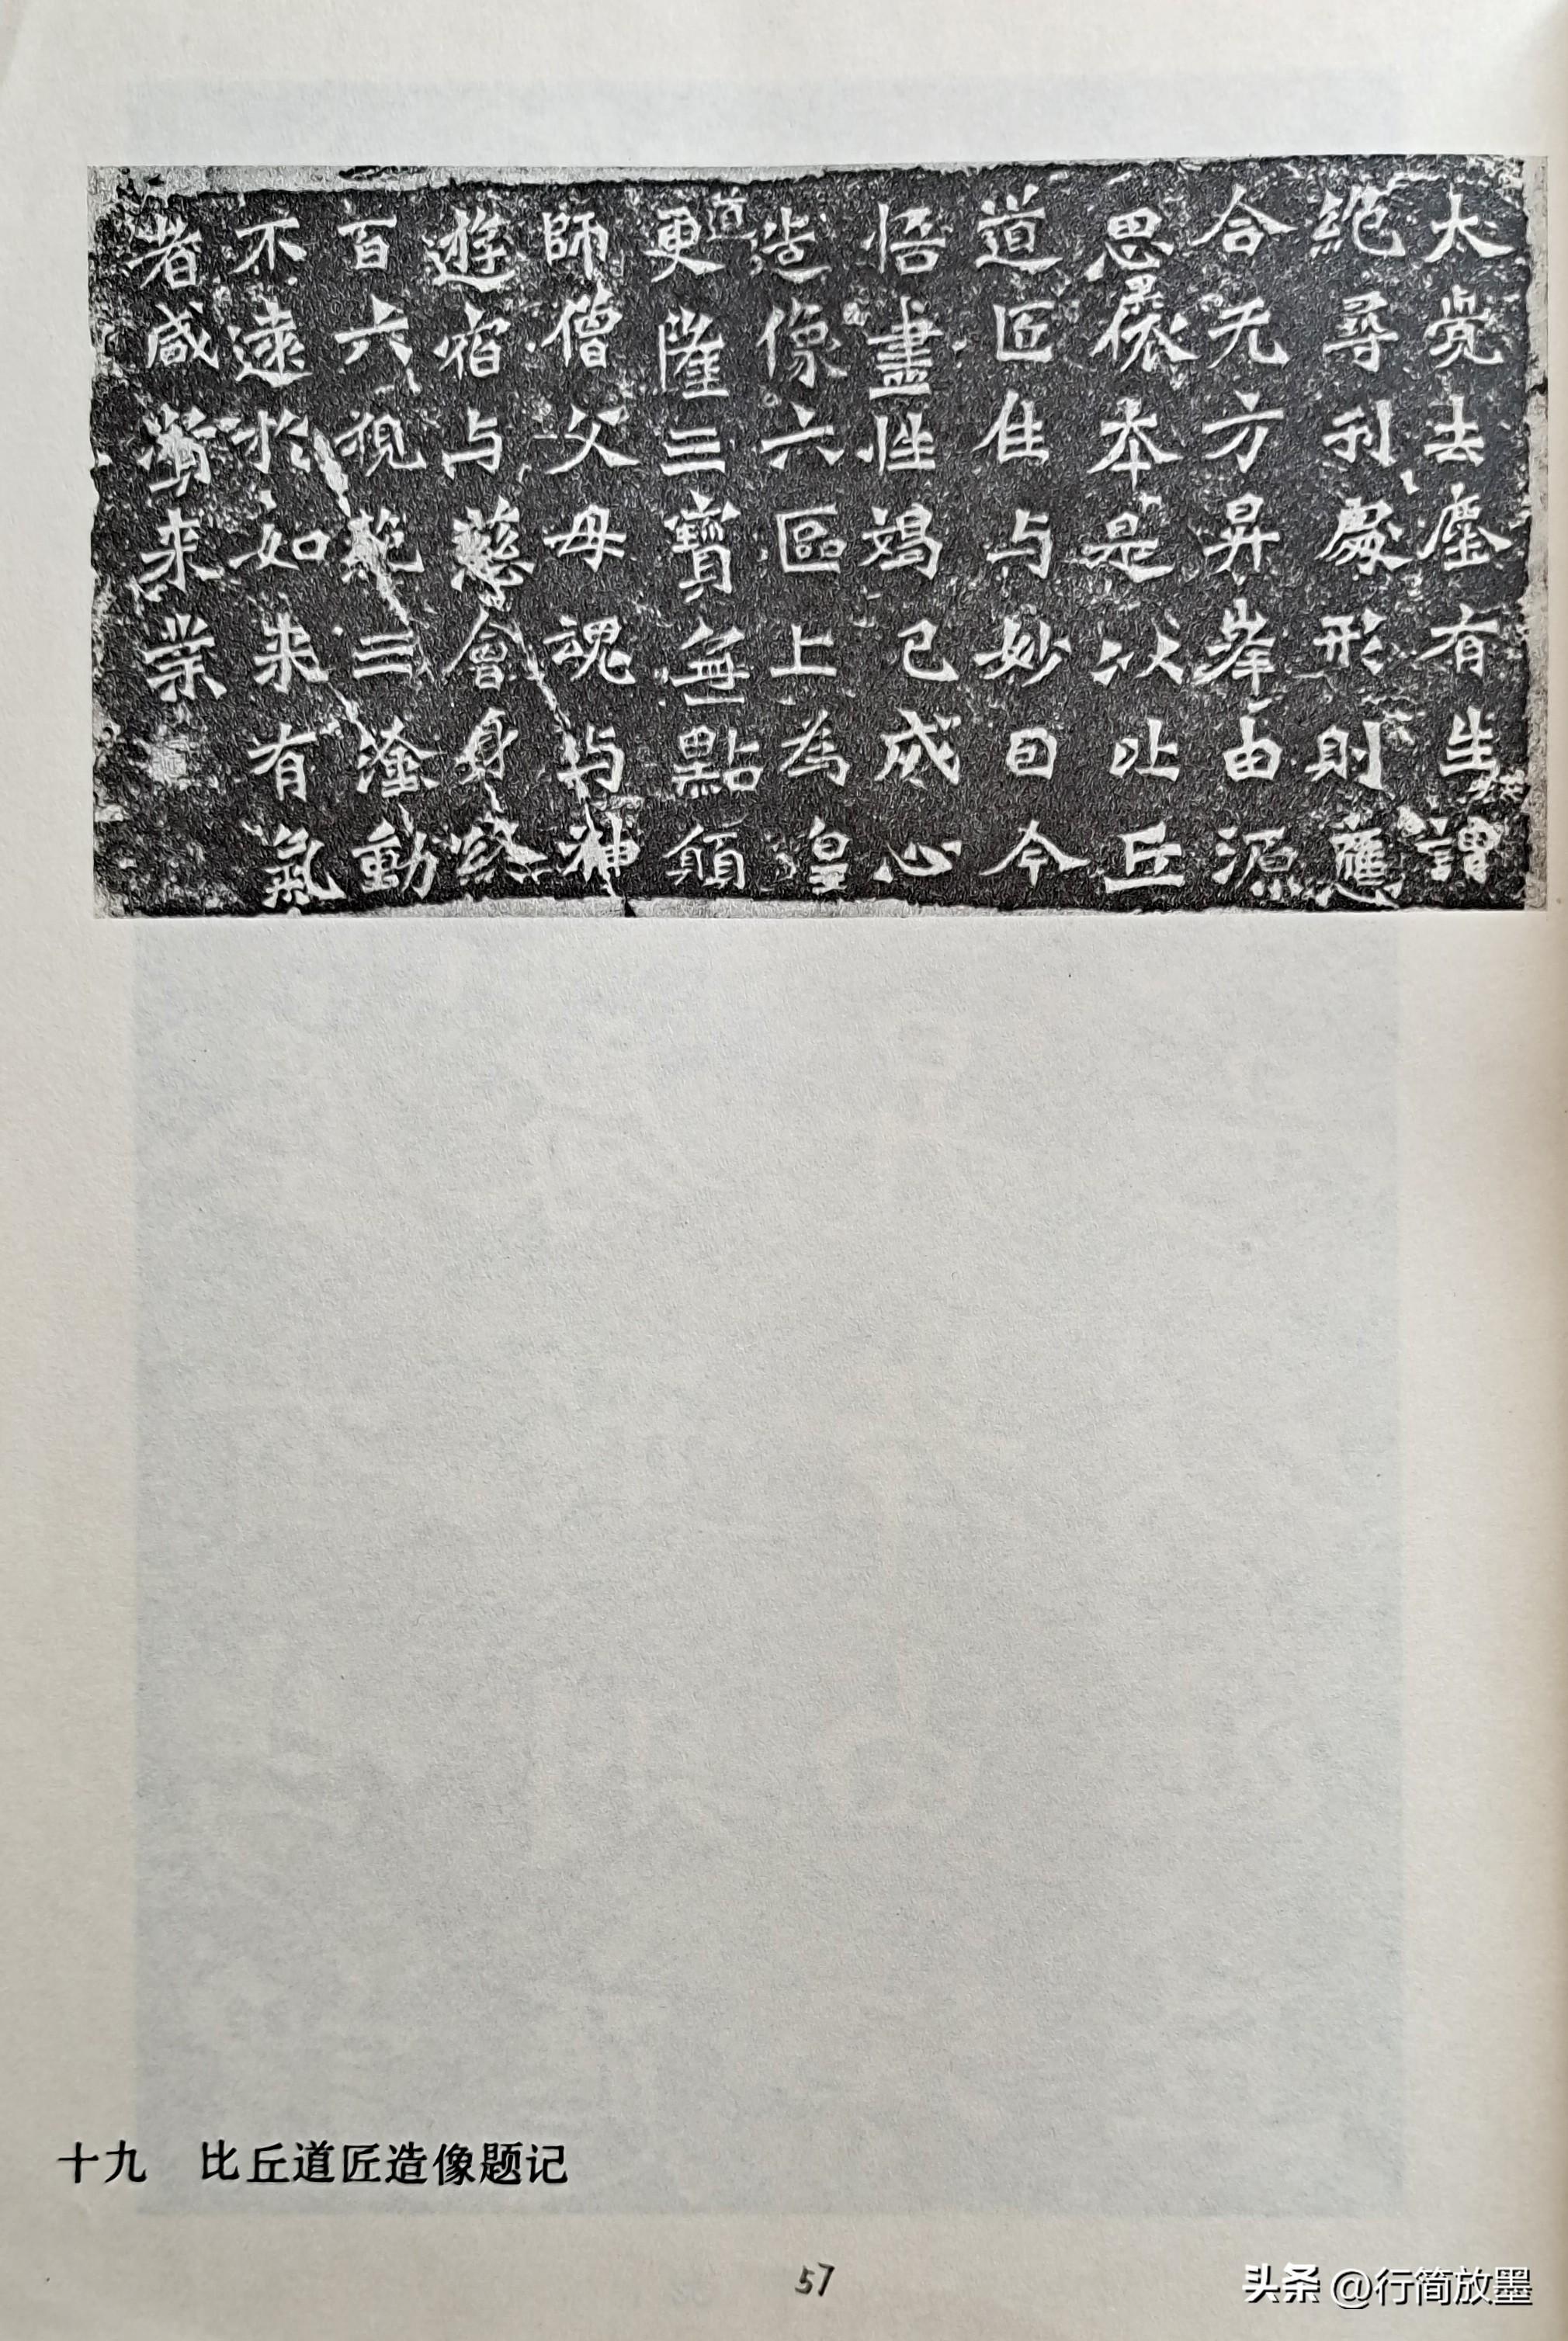 大覚去塵有生謂
絕尋刊處形則應
合无方昇峯由源
思㞡本是以比丘
道匠住与妙因今
悟盡性竭己成心
造像六區上為皇
道更隆三寶無點願
師僧父母魂与神
遊宿与慈會身終
百六視範三塗動
不遠於如来有氣
者咸蒙来業
十九 比丘道匠造像题记
57
头条 @行简放墨